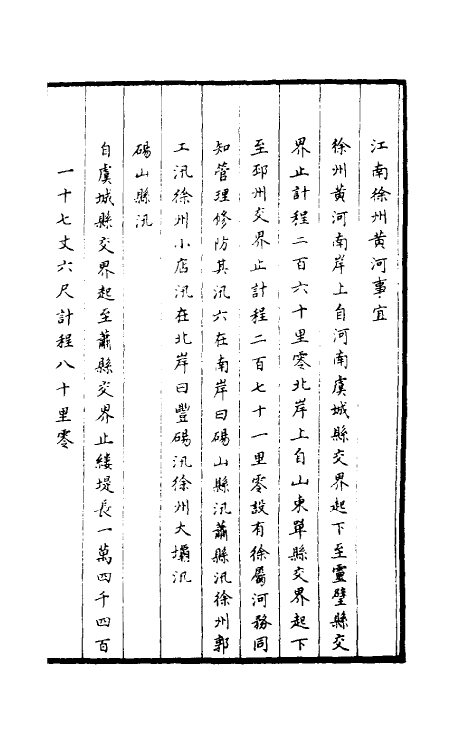 江南徐州黄河事宜
徐州黄河南岸上自河南虞城縣交界起下至靈璧縣交
界止計程二百六十里零北岸上自山東單縣交界起下
至邳州交界止計程二百七十一里零設有徐屬河務同
知管理修防其汛六在南岸曰碭山縣汛蕭縣汛徐州郭
工汛徐州小店汛在北岸曰豐碭汛徐州大壩汛
碭山縣汛
自虞城縣交界起至蕭縣交界止縷堤長一萬四千四百
一十七丈六尺計程八十里零